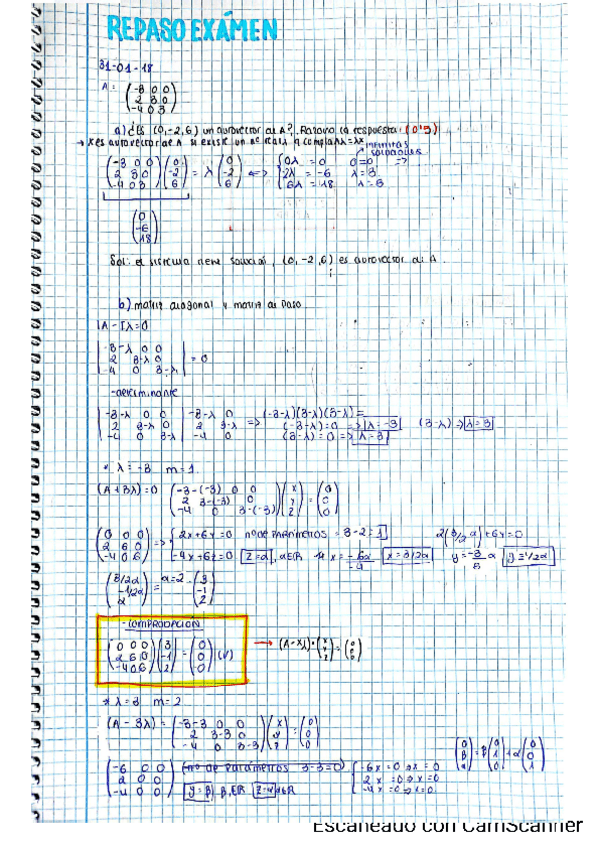 REPASO EXÁMEN
31-01-18
A = (-3 0 0 / 2 3 0 / -4 0 3)
a) ¿Es (0,-2,6) un autovector de A? Razona la respuesta. (0'5)
→ X es autovector de A si existe un nº real λ q cumpla AX=λX
infinitas soluciones
(-3 0 0 / 2 3 0 / -4 0 3)(0 / -2 / 6) = λ(0 / -2 / 6) <=> {0λ = 0 0=0 =>
-2λ = -6 λ=3
6λ = 18 λ=3
(0 / -6 / 18)
Sol: el sistema tiene solución, (0,-2,6) es autovector de A
b) matriz diagonal y matriz de paso
|A-Iλ=0
|-3-λ 0 0 / 2 3-λ 0 / -4 0 3-λ| = 0
-determinante
|-3-λ 0 0 / 2 3-λ 0 / -4 0 3-λ| -3-λ 0 / 2 3-λ / -4 0 => (-3-λ)(3-λ)(3-λ)=
(-3-λ)=0 => λ=-3 (3-λ) => λ=3
(3-λ)=0 => λ=3
* λ=-3 m=1
(A+3λ)=0 (-3-(-3) 0 0 / 2 3-(-3) 0 / -4 0 3-(-3))(x / y / z) = (0 / 0 / 0)
(0 0 0 / 2 6 0 / -4 0 6) => {2x+6y=0 nº de parámetros = 3-2=1 2(3/2α)+6y=0
-4x+6z=0 z=α, α∈R x=-6α/-4 x=3/2α y=-3/6 α y=-1/2α
(3/2α / -1/2α / α) = α=2 (3 / -1 / 2)
-COMPROBACIÓN
(0 0 0 / 2 6 0 / -4 0 6)(3 / -1 / 2) = (0 / 0 / 0) (V) → (A-Xλ)·(x / y / z)=(0 / 0 / 0)
* λ=3 m=2
(A-3λ) = (-3-3 0 0 / 2 3-3 0 / -4 0 3-3)(x / y / z) = (0 / 0 / 0)
(-6 0 0 / 2 0 0 / -4 0 0) (nº de parámetros 3-3=0) {-6x=0 => x=0
y=β β∈R z=α α∈R 2x=0 => x=0
-4x=0 => x=0
(0 / β / α) = β(0 / 1 / 0)+α(0 / 0 / 1)
Escaneado con CamScanner